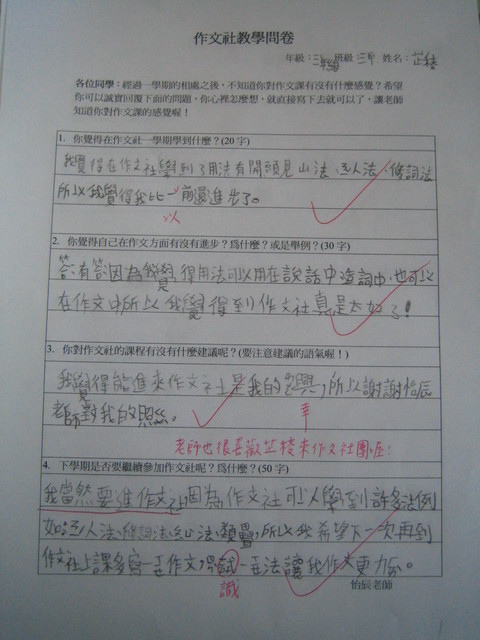 作文社教學問卷
年級：三年 班級 三甲 姓名：芷
各位同學：經過一學期的相處之後，不知道你對作文課有沒有什麼感覺？希望
你可以誠實回覆下面的問題，你心裡怎麼想，就直接寫下去就可以了，讓老師
知道你對作文課的感覺喔！
1. 你覺得在作文社一學期學到什麼？(20 字)
我覺得在作文社學到了用法有開頭見山法、人法、修詞法
所以我覺得我比一前還進步了。
以
2. 你覺得自己在作文方面有沒有進步？為什麼？或是舉例？(30 字)
答：有答：因為我覺得用法可以用在說話中造詞中，也可以
在作文中所以我覺得到作文社真是太好了！
3. 你對作文社的課程有沒有什麼建議呢？(要注意建議的語氣喔！)
我覺得能進來作文社是我的興，所以謝謝怡辰
老師對我的照。
幸
老師也很喜歡芷來作文社團喔！
4. 下學期是否要繼續參加作文社呢？為什麼？(50 字)
我當然要進作文社，因為作文社可以學到許多法例
如：人法、修詞法、法、類疊，所以我希望下一次再到
作文社上課多寫一作文，試一法讓我作文更力。
識
怡辰老師